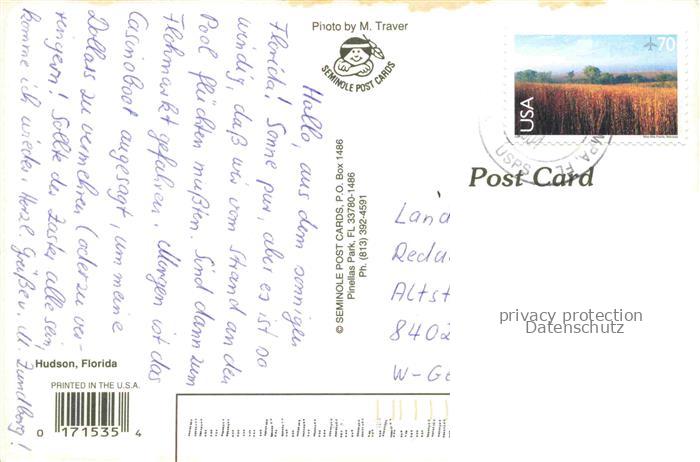 Hallo, aus dem sonnigen
Florida! Sonne pur, aber es ist so
windig, daß wir vom Strand an den
Pool flüchten mußten. Sind dann zum
Flohmarkt gefahren. Morgen ist das
Casinoboot angesagt, um meine
Dollars zu vermehren (oder zu ver-
ringern! Sollte der Zaster alle sein,
komme ich wieder. Herzl. Grüße M. Zundberg!
Hudson, Florida
PRINTED IN THE U.S.A.
0 171535 4
Photo by M. Traver
SEMINOLE POST CARDS
© SEMINOLE POST CARDS, P.O. Box 1486
Pinellas Park, FL 33780-1486
Ph. (813) 392-4591
70
USA
MPA, FL
USPS
Post Card
Land
Reda
Altst
8402
W-Ge
privacy protection
Datenschutz